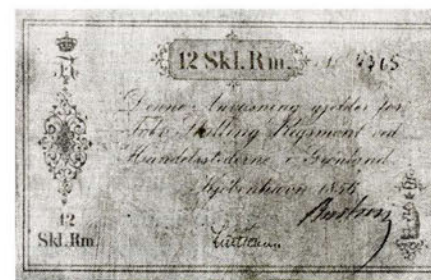 12 Skl. Rm. 4365
Denne Anviisning gjelder for
Tolv Skilling Rigsmønt ved
Handelsstederne i Grønland.
Kjøbenhavn 1856
12
Skl. Rm.